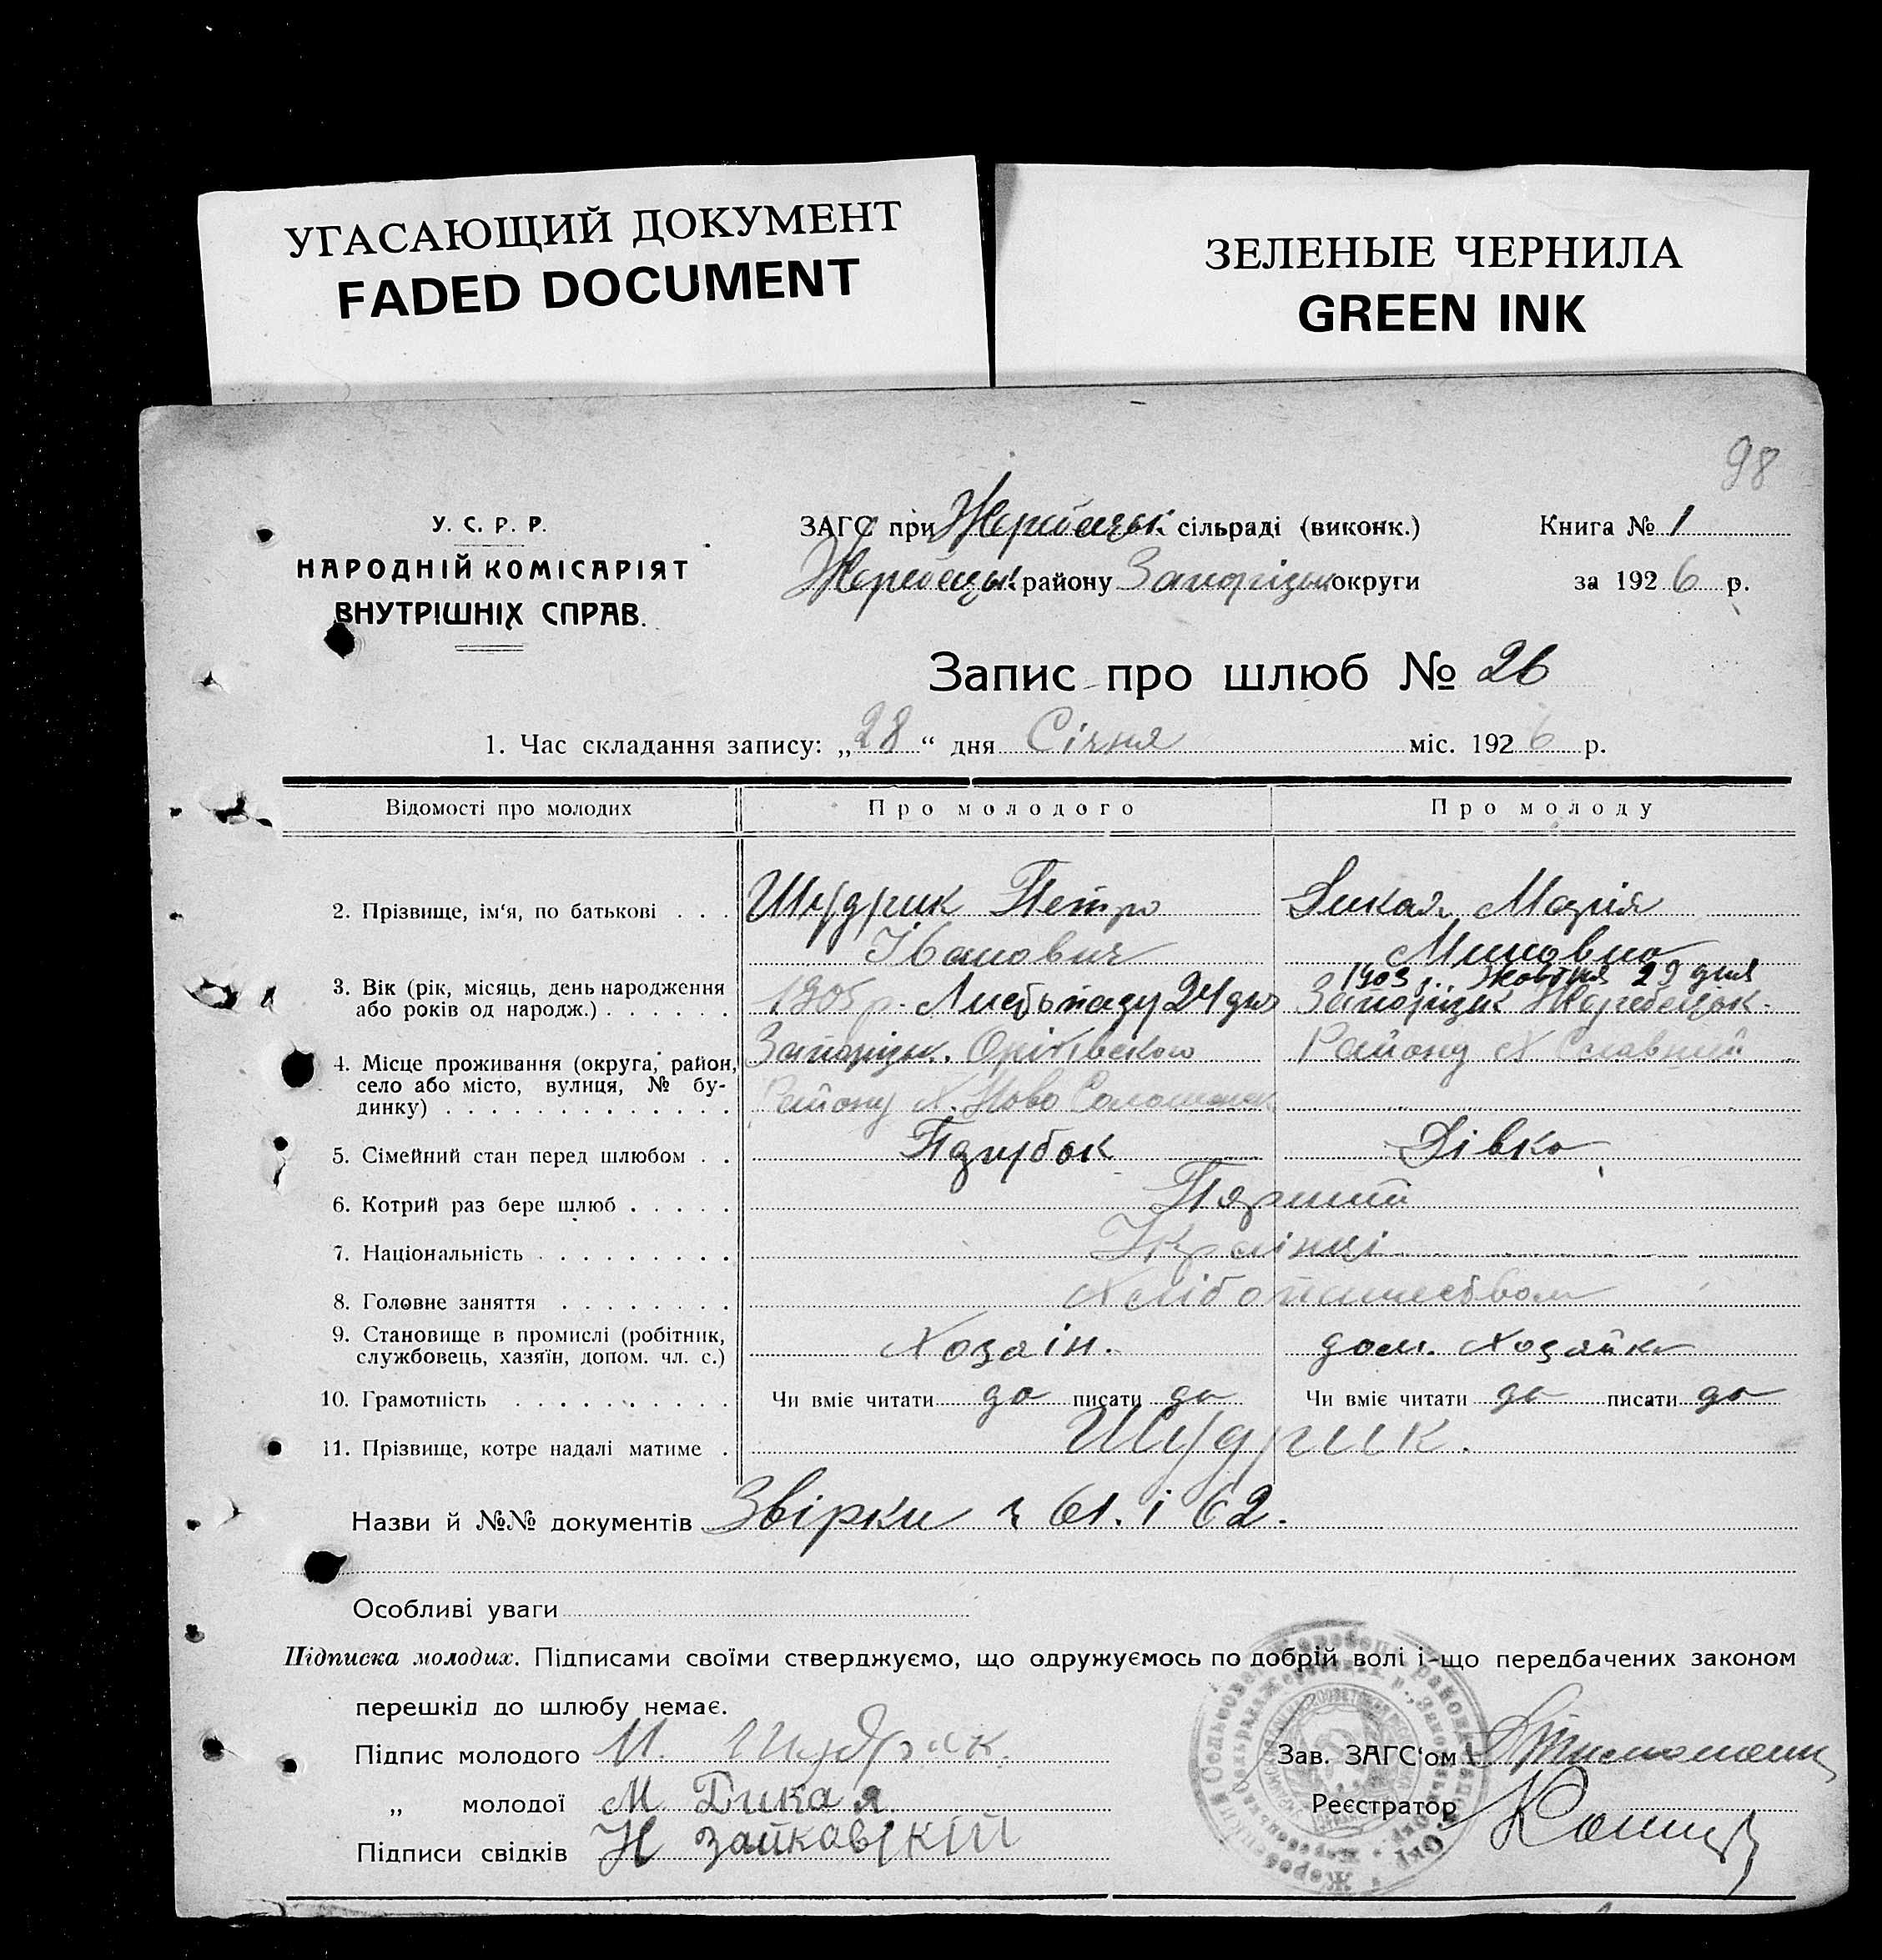 УГАСАЮЩИЙ ДОКУМЕНТ
FADED DOCUMENT
ЗЕЛЕНЫЕ ЧЕРНИЛА
GREEN INK
98
У. С. Р. Р.
НАРОДНІЙ КОМІСАРІЯТ
ВНУТРІШНІХ СПРАВ.
ЗАГС при Жеребецьк. сільраді (виконк.)
Книга № 1
Жеребецьк. району Запоріжськ округи
за 1926 р.
Запис про шлюб № 26
1. Час складання запису: „28“ дня Січня міс. 1926 р.
Відомості про молодих
Про молодого
Про молоду
2. Прізвище, ім'я, по батькові . . .
Шудрик Петро
Дикая Марія
Іванович
3. Вік (рік, місяць, день народження
або років од народж.) . . . . . .
1905 р. Листопаду 24 дня
1903 р. Жовтня 29 дня
Жеребецьк.
4. Місце проживання (округа, район,
село або місто, вулиця, № бу-
динку) . . . . . . . . . . . . .
Оріхівского
Району Х. Ново
Району Х Славний
5. Сімейний стан перед шлюбом . .
Парубок
Дівка
6. Котрий раз бере шлюб . . . . .
Перший
7. Національність . . . . . . . . .
Українці
8. Головне заняття . . . . . . . .
Хлібопашеством
9. Становище в промислі (робітник,
службовець, хазяїн, допом. чл. с.)
Хозяін.
дом. хозяйка
10. Грамотність . . . . . . . . . .
Чи вміє читати да писати да
Чи вміє читати да писати да
11. Прізвище, котре надалі матиме .
Шудрик.
Назви й №№ документів Звірки 61. і 62.
Особливі уваги
Підписка молодих. Підписами своїми стверджуємо, що одружуємось по добрій волі і що передбачених законом
перешкід до шлюбу немає.
Підпис молодого Шудрик.
„ молодої М. Дикая
Підписи свідків Н Зайковскій
Зав. ЗАГС'ом
Реєстратор